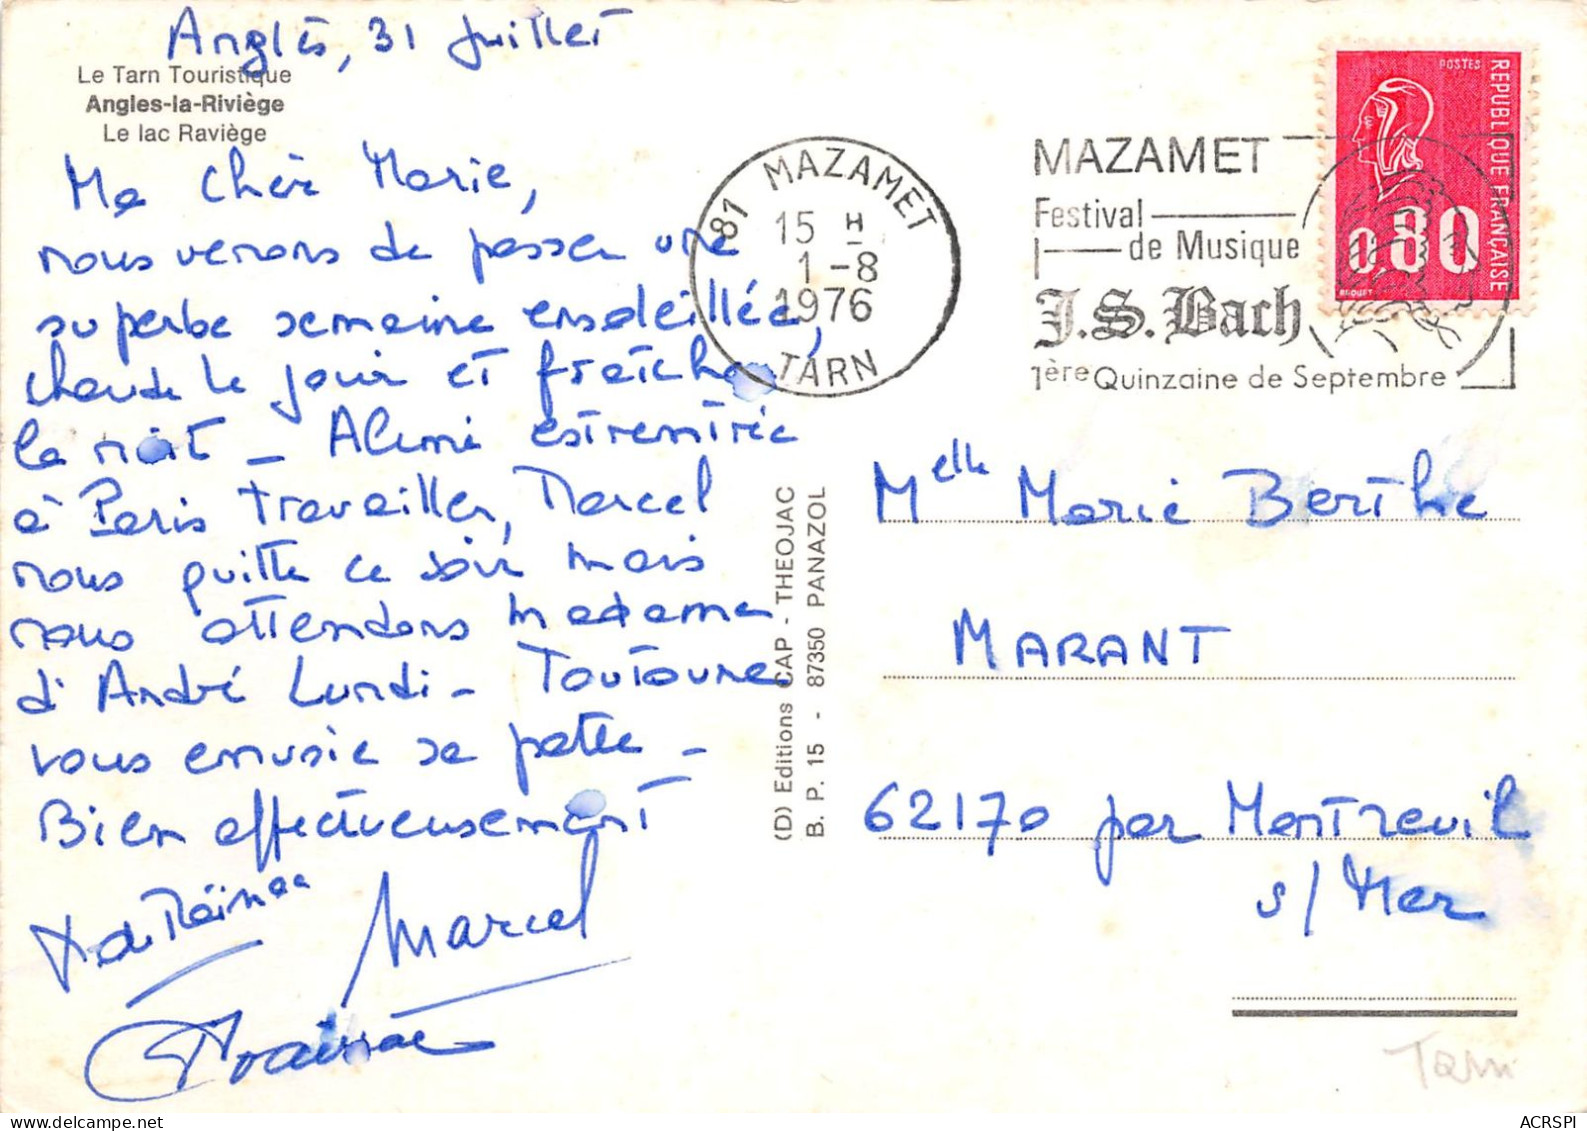 Anglès, 31 Juillet
Le Tarn Touristique
Angles-la-Riviège
Le lac Raviège
Ma Chère Marie,
nous venons de passer une
superbe semaine ensoleillée,
chaude le jour et fraîche
la nuit - Aimé est rentré
à Paris travailler, Marcel
nous quitte ce soir mais
nous attendons Madame
d'André Lundi - Toutoune
vous envoie sa patte -
Bien affectueusement
Marcel
81 MAZAMET
15 H
1-8
1976
TARN
MAZAMET
Festival
de Musique
J.S. Bach
1ère Quinzaine de Septembre
POSTES
REPUBLIQUE FRANÇAISE
0,80
BEQUET
(D) Editions CAP - THEOJAC
B. P. 15 - 87350 PANAZOL
Melle Marie Berthe
MARANT
62170 par Montreuil
s/ Mer
Tarn
ACRSPI